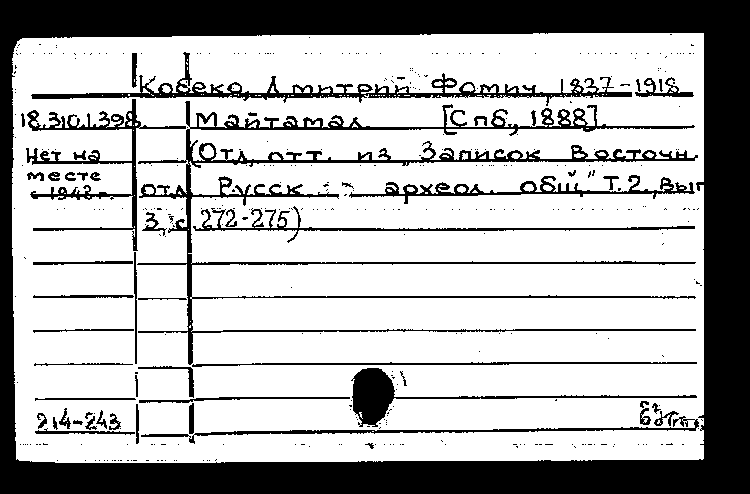 Кобеко, Дмитрий Фомич, 1837-1918
18.310.1.398. Майтамал [Спб., 1888].
Нет на (Отд. отт. из „Записок Восточн.
месте
с 1948 г. отд. Русск археол. общ." Т.2., вып
3, с. 272-275)
214-243